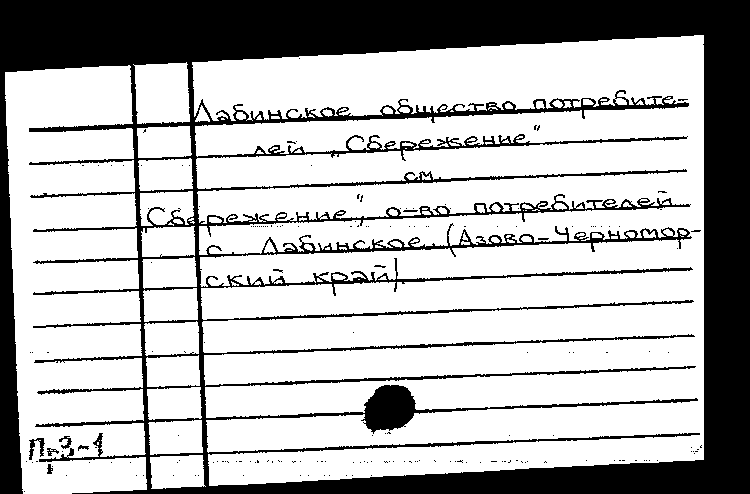 Лабинское общество потребите-
лей „Сбережение"
см.
„Сбережение", о-во потребителей
с. Лабинское (Азово-Черномор-
ский край).
Пр3-1